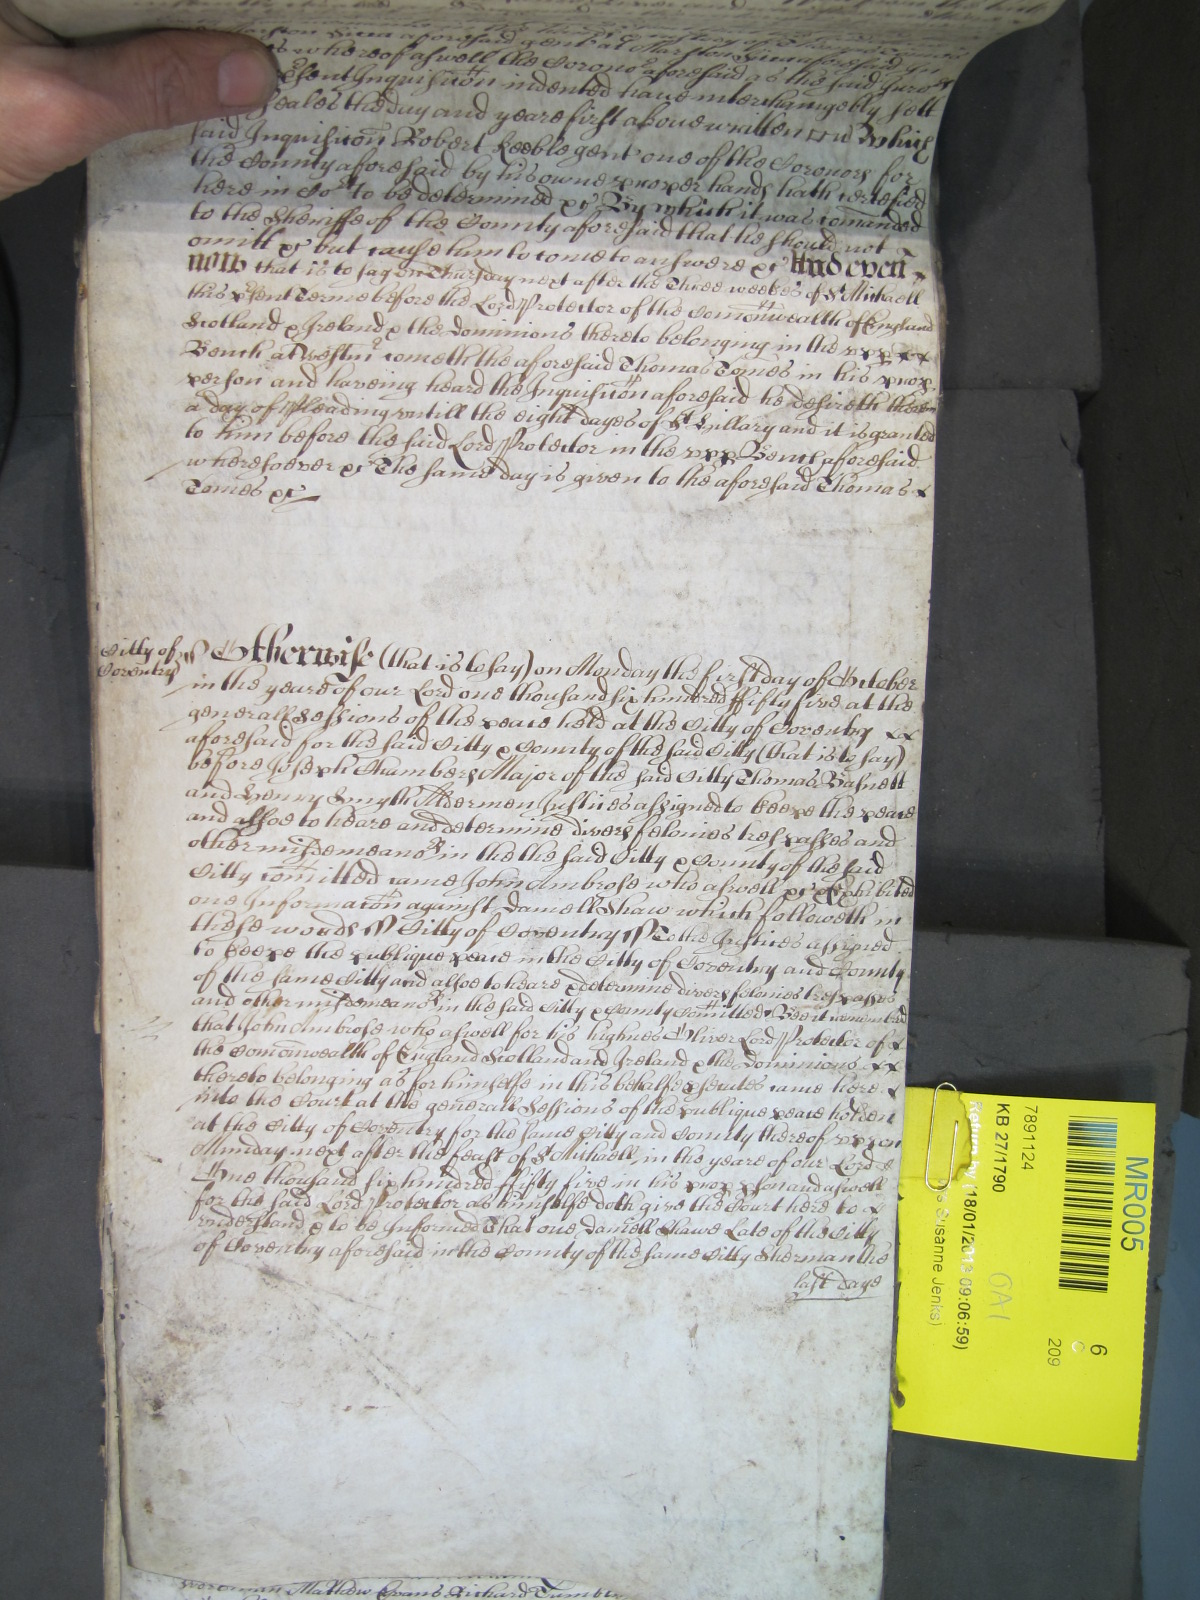 whereof aswell the Corono^r aforesaid as the said Juro^rs
p̱sent Inquisic̃on indented have interchangebly sett
seales the day and yeare first above written And Which
said Inquisic̃on Robert Keeble gent one of the Coronors for
the County aforesaid by his owne proper hands hath certefied
here in Co^rt to be determined &c By which it was com̃anded
to the Sheriffe of the County aforesaid that he should not
omitt &c but cause him to come to answere &c And even
now that is to say on Thursday next after the Three weekes of S^t Michaell
this p̱sent Terme before the Lord Protector of the Com̃onwealth of England
Scotland & Ireland & the dominions thereto belonging in the upp xx
Bench at Westm̃ cometh the aforesaid Thomas Tomes in his prop
person and haveing heard the Inquisic̃on aforesaid he desireth thereof
a day of Pleading untill the eight dayes of S^t Hillary and it is granted
to him before the said Lord Protector in the upp Bench aforesaid
wheresoever &c The same day is given to the aforesaid Thomas
Tomes &c
Citty of
Coventry
ss Otherwise (that is to say) on Monday the first day of October
in the yeare of our Lord one thousand six hundred fifty five at the
generall Sessions of the peace held at the Citty of Coventry xx
aforesaid for the said Citty & County of the said Citty (that is to say)
before Joseph Chambers Major of the said Citty Thomas Basnett
and Henry Smyth Aldermen Justices assigned to keepe the peace
and alsoe to heare and determine divers felonies trespasses and
other misdemeano^rs in the the said Citty & County of the said
Citty com̃itted came John Ambrose who aswell &c & exhibited
one Informac̃on against Daniell Shaw which followeth in
these words ss Citty of Coventry ss To the Justices assigned
to keepe the publique peace in the Citty of Coventry and County
of the same Citty and alsoe to heare & determine divers felonies trespasses
and other misdemeano^rs in the said Citty & County com̃itted Bee it remembred
that John Ambrose who aswell for his highnes Oliver Lord Protector of x
the Com̃onwealth of England Scotland and Ireland & the Dominions xx
thereto belonging as for himselfe in this behalfe p̱secutes came here x
into the Court at the generall Sessions of the publique peace holden
at the Citty of Coventry for the same Citty and County thereof uppon
Munday next after the feast of S^t Michaell in the yeare of our Lord
One thousand six hundred fifty five in his prop p̱son and aswell
for the said Lord Protector as himselfe doth give the Court here to x
understand & to be Informed That one Daniell Shawe Late of the Citty
of Coventry aforesaid in the County of the same Citty Sherman the
last daye
Mathew Evans Richard
MR005
7891124
KB 27/1790
Return by (18/01/2013 09:06:59)
Susanne Jenks)
OA1
6
C
209